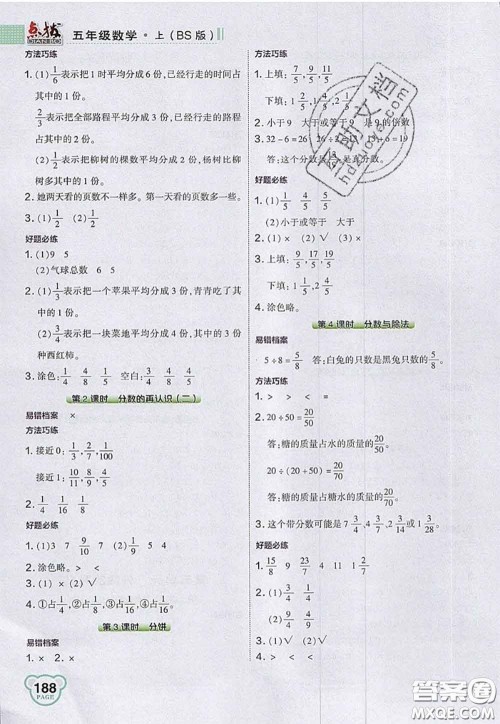 点拨 DIAN BO 五年级数学·上(BS版)
方法巧练
1. (1) 1/6 表示把1时平均分成6份,已经行走的时间占
其中的1份。
2/3 表示把全部路程平均分成3份,已经行走的路程
占其中的2份。
(2) 1/4 表示把柳树的棵数平均分成4份,杨树比柳
树多其中的1份。
2. 她两天看的页数不一样多。第一天看的页数多一些。
3. (1) 1/2 (2) 1/2
好题必练
1. (1)9 5
(2)气球总数 6 5
2. (1) 1/3 表示把一个苹果平均分成3份,青青吃了其
中的1份。
(2) 3/4 表示把一块菜地平均分成4份,其中的3份
种西红柿。
3. 涂色: 1/4 4/8 1/5 空白: 3/4 4/8 4/5
第2课时 分数的再认识(二)
易错档案 ×
方法巧练
1. 接近0: 1/3, 1/7, 1/100
接近1: 9/10, 7/8
2. 1/4 1/16 1/16
好题必练
1. (1)3 7 9/10 7 (2) 1/9 5 4
2. (1)× (2)√
3. > < >
4. ①占 1/4, ②占 1/4, ③占 1/8, ④占 1/16。
第3课时 分饼
易错档案
1. × 2. ×
188
PAGE
方法巧练
1. 上填: 7/5 9/5 11/5
下填: 1 1/5 1 4/5
2. 小于9 大于或等于9 是9的倍数
答:这个分数是
好题必练
1. (1) 1/5 4/5
(2)小于或等于 大于
2. (1)× (2)× (3)√
3. 上填:
下填:
4. 涂色略。
第4课时 分数与除法
易错档案
5÷8=5/8 答:白兔的只数是黑兔只数的 5/8。
方法巧练
1. > > < =
2. 20÷50=20/50
答:糖的质量占水的质量的 20/50。
20÷(20+50)=20/70
答:糖的质量占糖水的质量的
20/70。
3. 这个带分数可能是 7 3/4、4 3/7、2 3/14 或 1 3/28。
好题必练
1. 15/8 9 3/4 11 1 2/7
2. (1)√ (2)√ (3)√
3. > < > =
答案圈
MXQE.COM